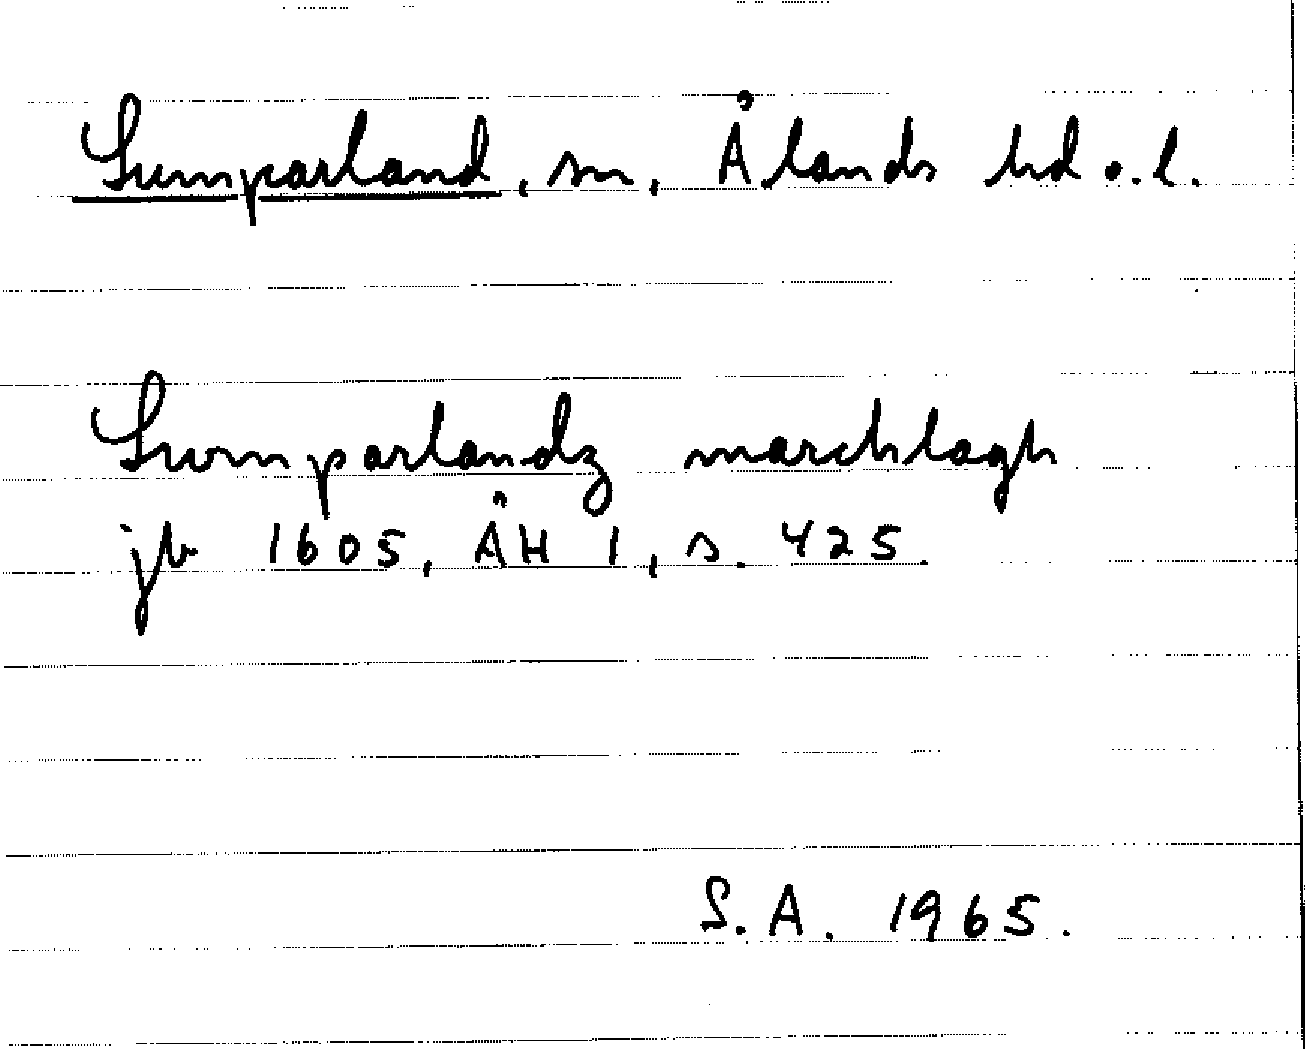 Lumparland, sn, Ålands hd o. l.
Lwmparlandz marchlagh
jb 1605, ÅH 1, s. 425.
S.A. 1965.